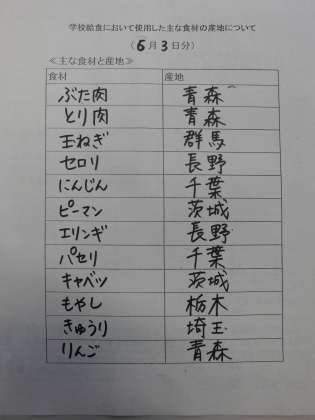 学校給食において使用した主な食材の産地について
（6月3日分）
≪主な食材と産地≫
食材 産地
ぶた肉 青森
とり肉 青森
玉ねぎ 群馬
セロリ 長野
にんじん 千葉
ピーマン 茨城
エリンギ 長野
パセリ 千葉
キャベツ 茨城
もやし 栃木
きゅうり 埼玉
りんご 青森